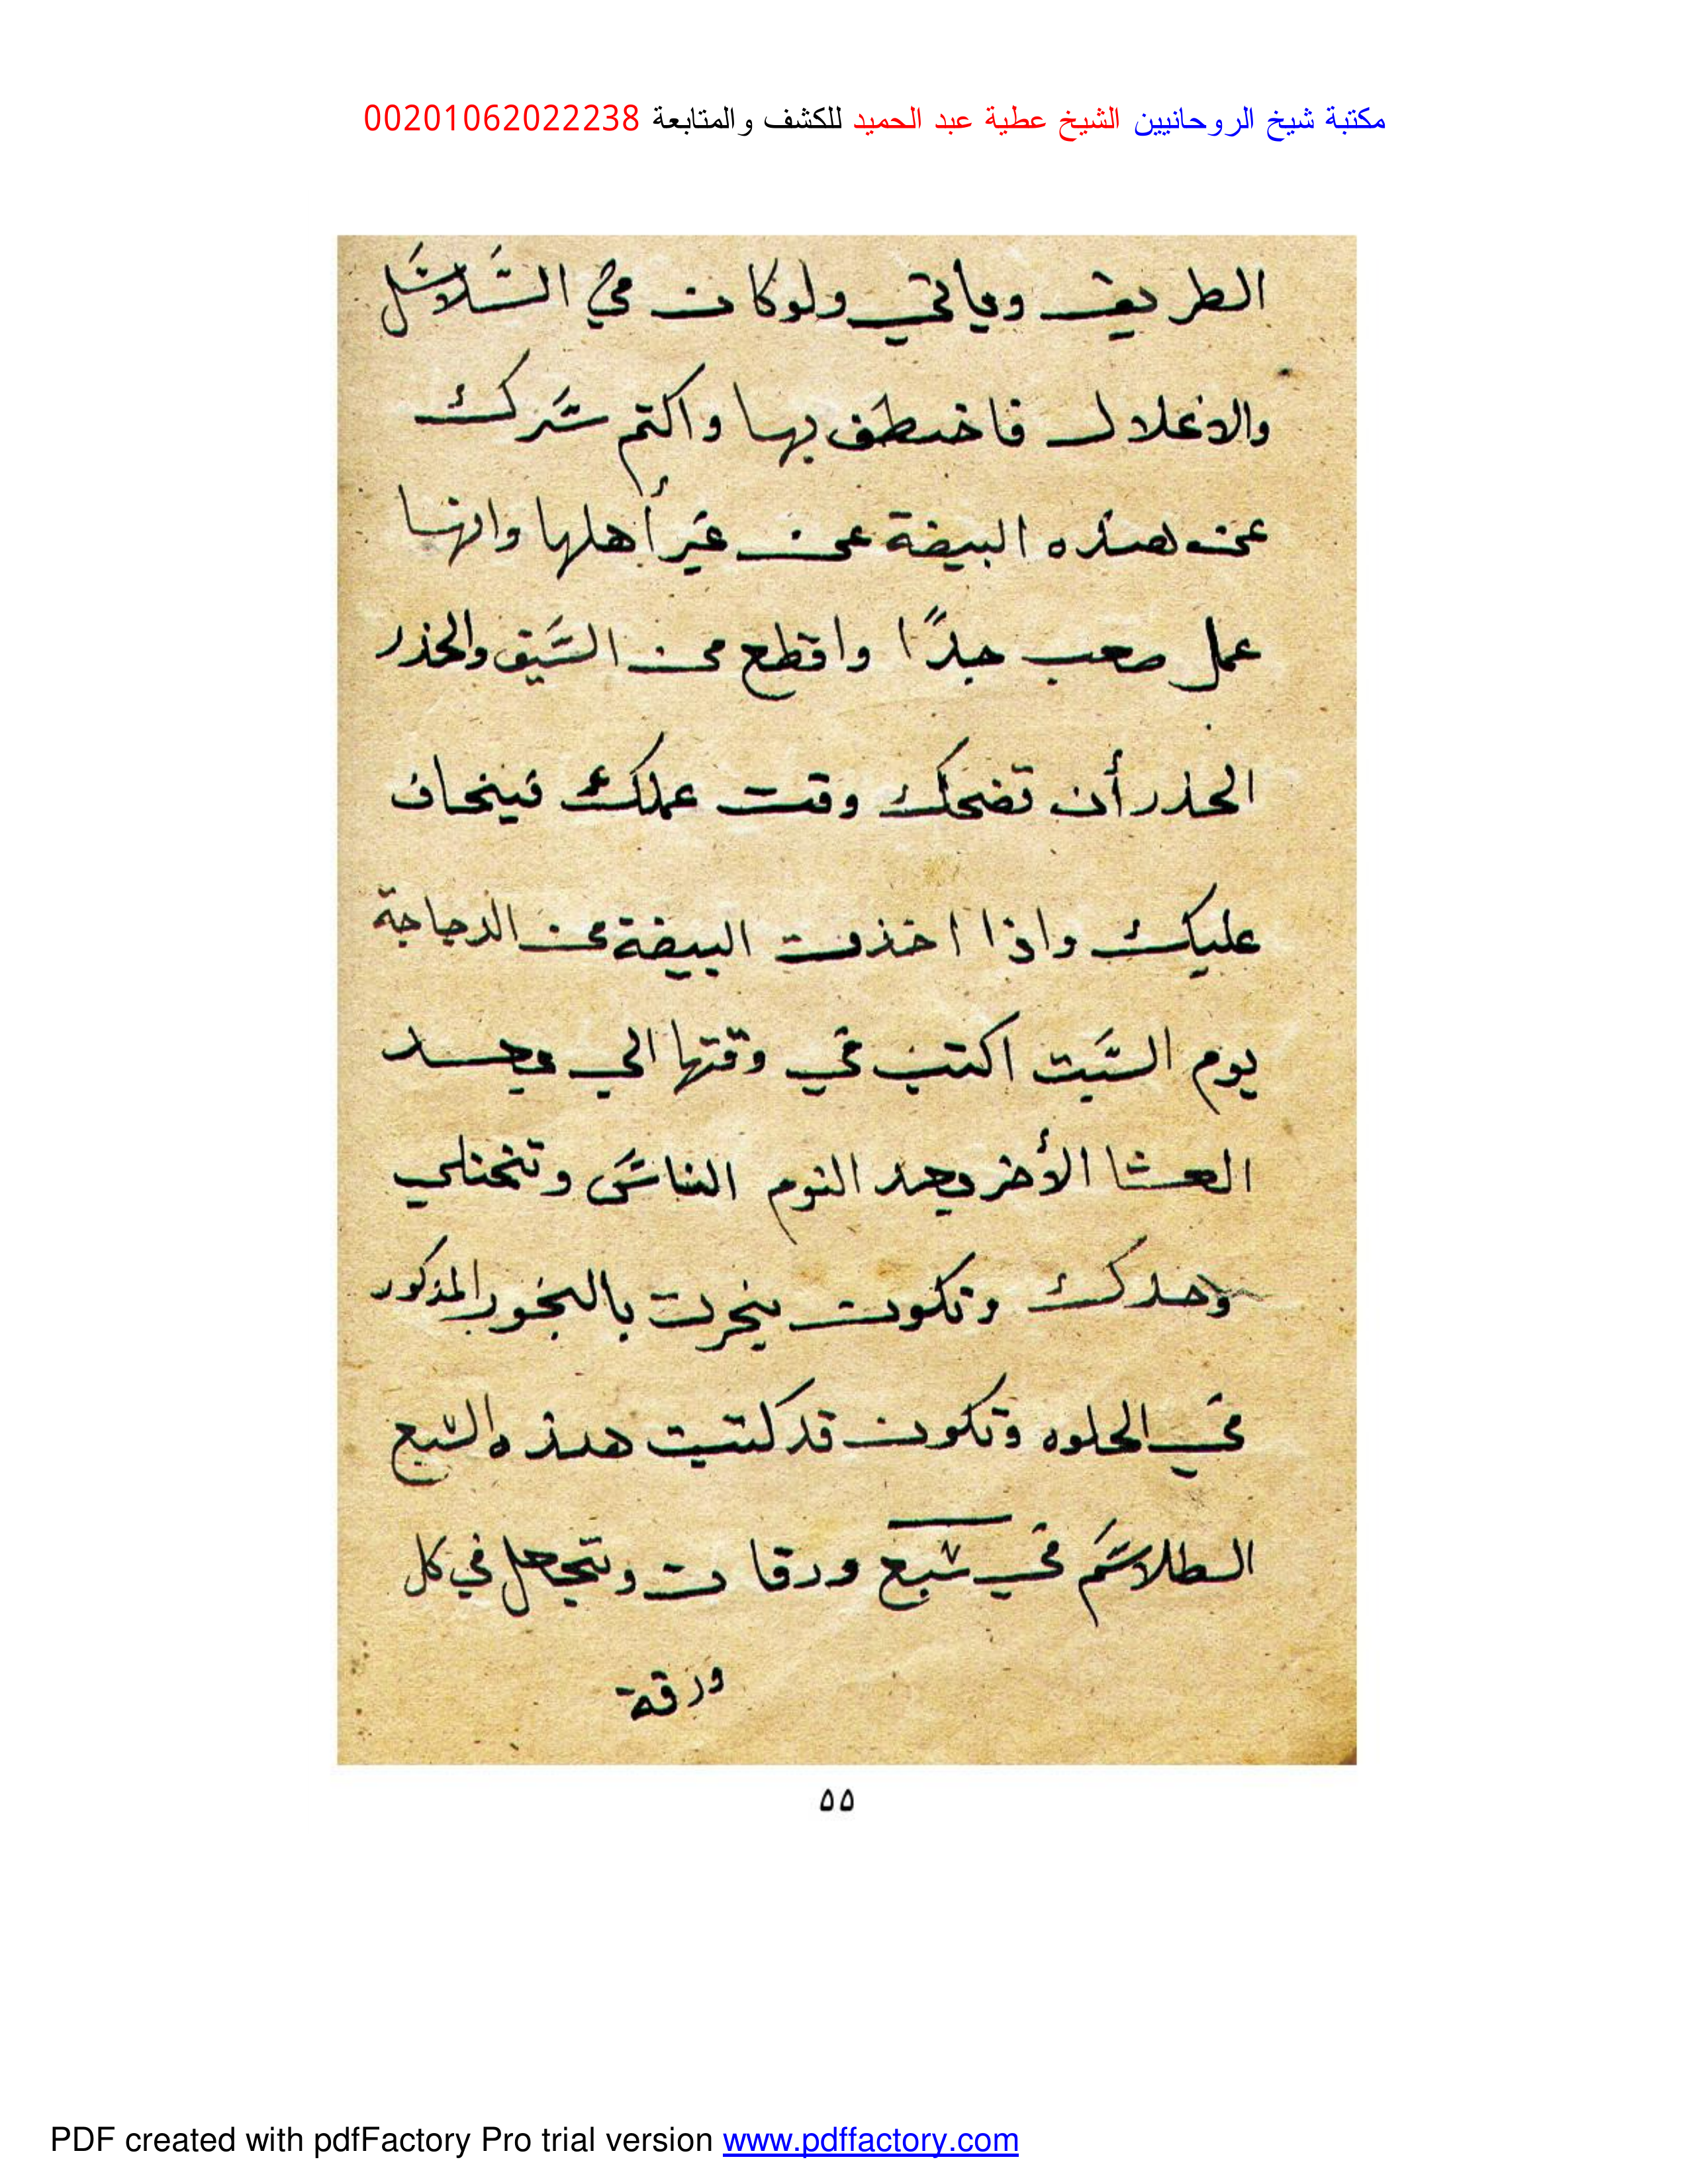 مكتبة شيخ الروحانيين الشيخ عطية عبد الحميد للكشف والمتابعة 00201062022238
الطريق وياتي ولوكان في السلاسل
والاغلال فاختطف بها واكتم سرك
عن هذه البيضة عن غير أهلها وانها
عمل صعب جدًا واقطع من السيف والحذر
الحذر أن تضحك وقت عملك فينحاف
عليك واذا اخذت البيضة من الدجاجة
يوم السبت اكتب في وقتها الي بعد
العشا الأخر بعد النوم الناس وتختلي
وحدك وتكون بخرت بالبخور المذكور
في الخلوه وتكون قد كتبت هذه السبع
الطلاسم في سبع ورقات وتجعل في كل
ورقة
٥٥
PDF created with pdfFactory Pro trial version www.pdffactory.com